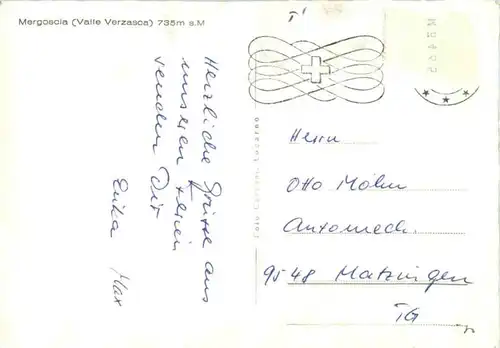 Mergoscia (Valle Verzasca) 735m s.M
Herzliche Grüsse aus
unseren Ferien
senden Dir
Erika Max
Herrn
Otto Möhn
Automech.
9548 Matzingen
TG